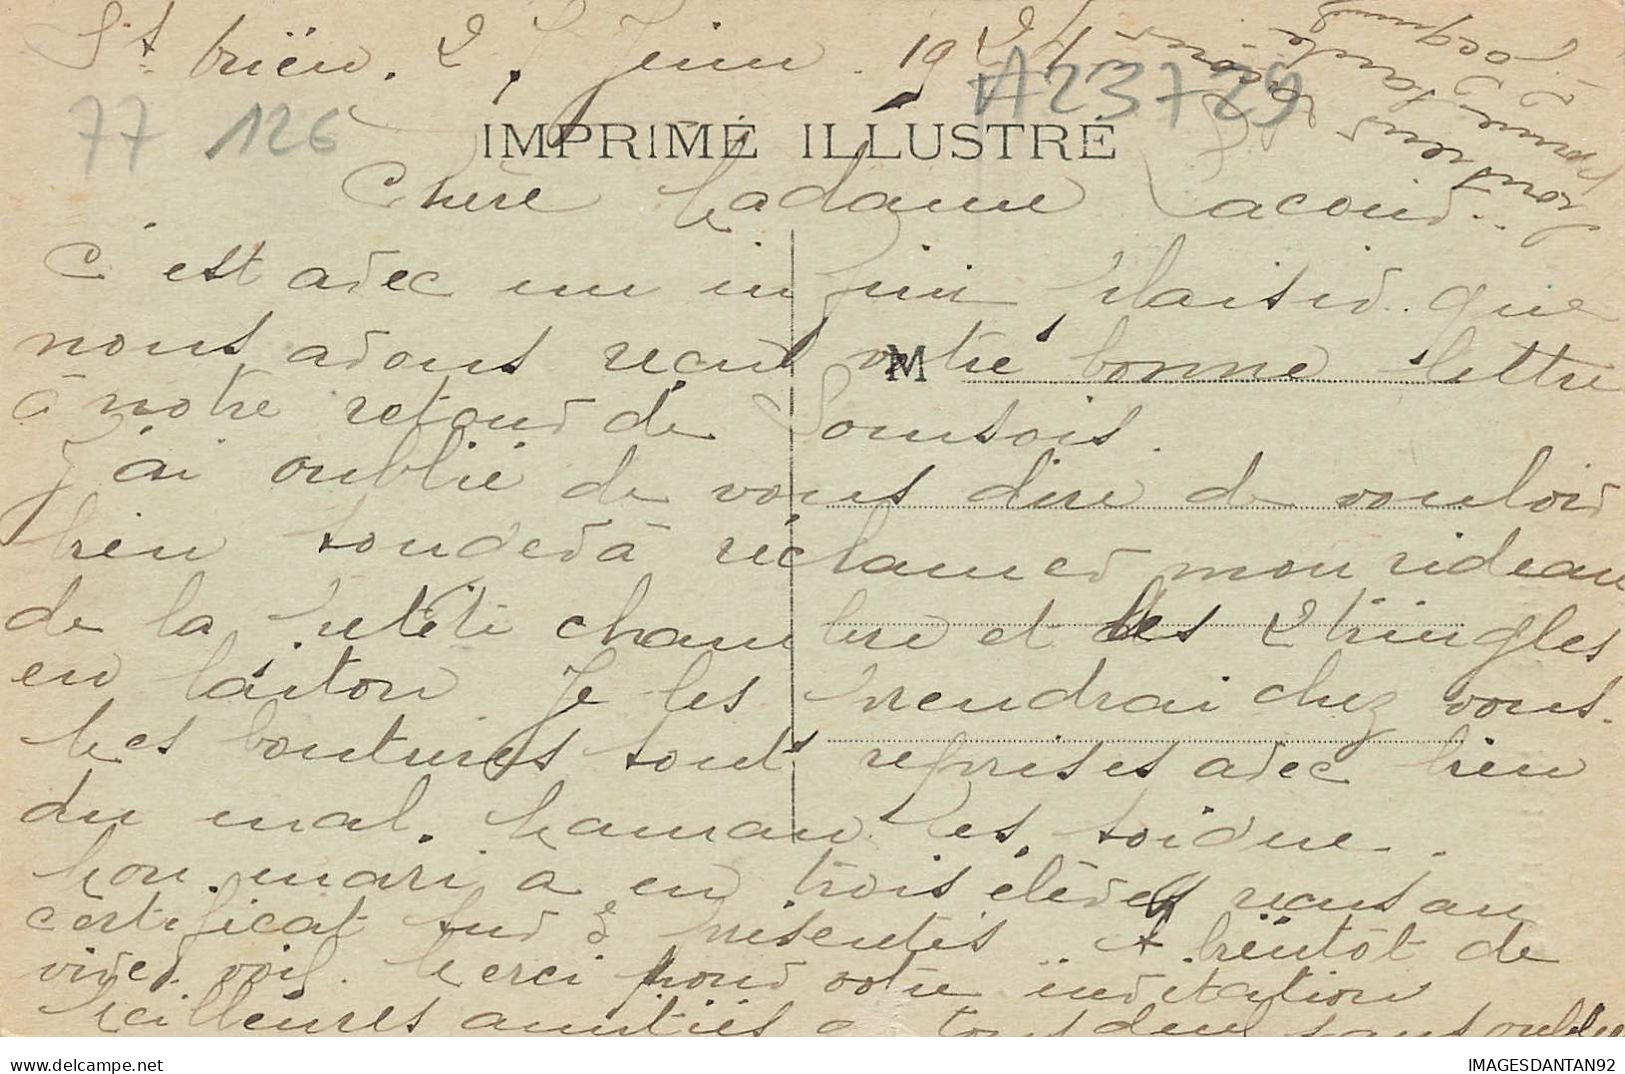 St brieu. 27 Juin. 1924
A23729
77 126
IMPRIMÉ ILLUSTRÉ
Chère Madame Lacour.
C'est avec un infini plaisir que
nous avons reçut votre bonne lettre
M
à notre retour de Soursois.
J'ai oublié de vous dire de vouloir
bien Songer à réclamer mon rideau
de la petite chambre et les 2 tringles
en laiton Je les prendrai chez vous.
Mes boutures sont reprises avec bien
du mal. Maman les soigne.
Mon mari a eu trois élèves reçus au
certificat sur 3 présentés. A bientôt de
vive voix. Merci pour votre invitation
Meilleures amitiés a tous deux sans oublier
IMAGESDANTAN92